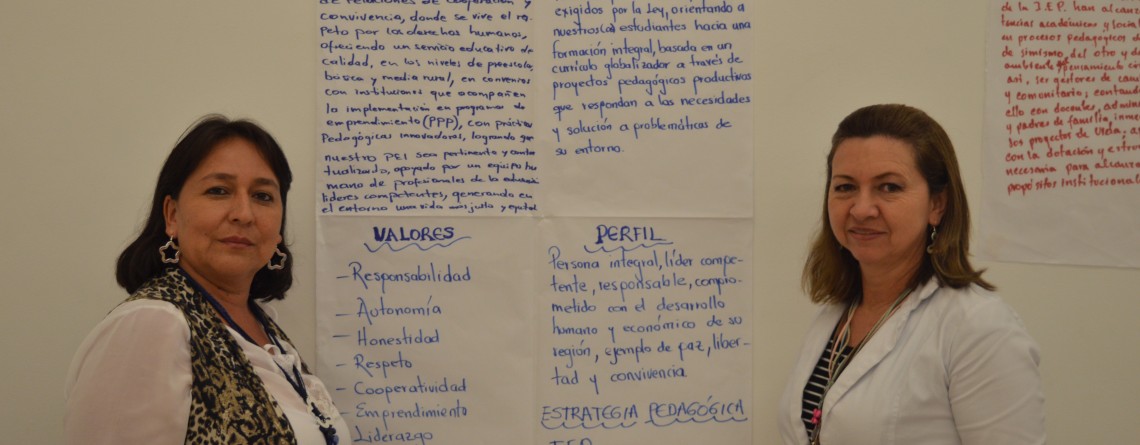 de relaciones de cooperación y
convivencia, donde se vive el res-
peto por los derechos humanos,
ofreciendo un servicio educativo de
calidad, en los niveles de preescolar,
básica y media rural, en convenios
con instituciones que acompañen
la implementación en programas de
emprendimiento (PPP), con prácticas
Pedagógicas innovadoras, logrando que
nuestro PEI sea pertinente y contex
tualizado, apoyado por un equipo hu
mano de profesionales de la educación
líderes competentes, generando en
el entorno una vida mas justa y
exigidos por la Ley, orientando a
nuestros(as) estudiantes hacia una
formación integral, basada en un
currículo globalizador a través de
proyectos pedagógicos productivos
que respondan a las necesidades
y solución a problemáticas de
su entorno.
VALORES
- Responsabilidad
- Autonomía
- Honestidad
- Respeto
- Cooperatividad
- Emprendimiento
- Liderazgo
PERFIL
Persona integral, líder compe-
tente, responsable, compro-
metido con el desarrollo
humano y económico de su
región, ejemplo de paz, liber-
tad y convivencia
ESTRATEGIA PEDAGÓGICA
de la I.E.P. han alcanz
tencias académicas y social
en procesos pedagógicos d
de si mismo, del otro y d
ambiente pensamiento crí
así, ser gestores de cam
y comunitario; contand
ello con docentes, admin
y padres de familia, inme
sos proyectos de vida; a
con la dotación y estruc
necesaria para alcanza
propósitos institucional